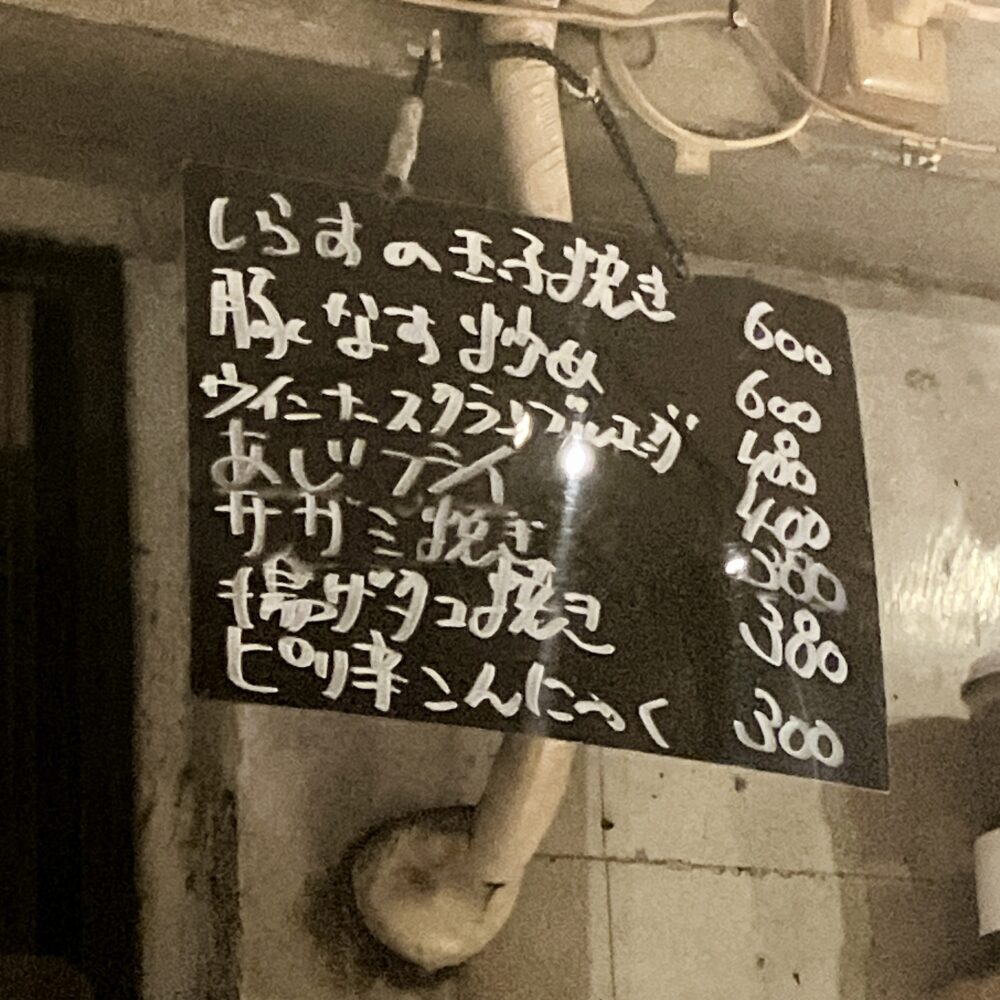 しらすの玉子焼き 600
豚なす炒め 600
ウインナースクランブルエッグ 480
あじフライ 400
サガミ焼き 380
揚げタコ焼き 380
ピリ辛こんにゃく 300